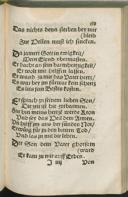 Das nichts denn sterben bey mir
blieb
Zur Hellen must ich sincken.
Da jamert Gott in ewigkeit /
Mein Elend
Er dacht an sein barmhertzigkeit /
Er wolt mir helffen lassen.
Er wandt zu mir das Vater hertz /
Es war bey jm fürwar kein schertz
Er lies sein Bestes kosten.
Er sprach zu seinem lieben Son /
Die zeit ist hie
Far hin meins hertz werde Kron
Und sey das Heil dem Armen.
Und hilff jm aus der sünden Not /
Erwürg für jn den bittern Tod /
Und las jn mit dir leben.
Der Son dem Vater ghorsam
ward
Er kam zu mir auff Erden.
J iiij Von